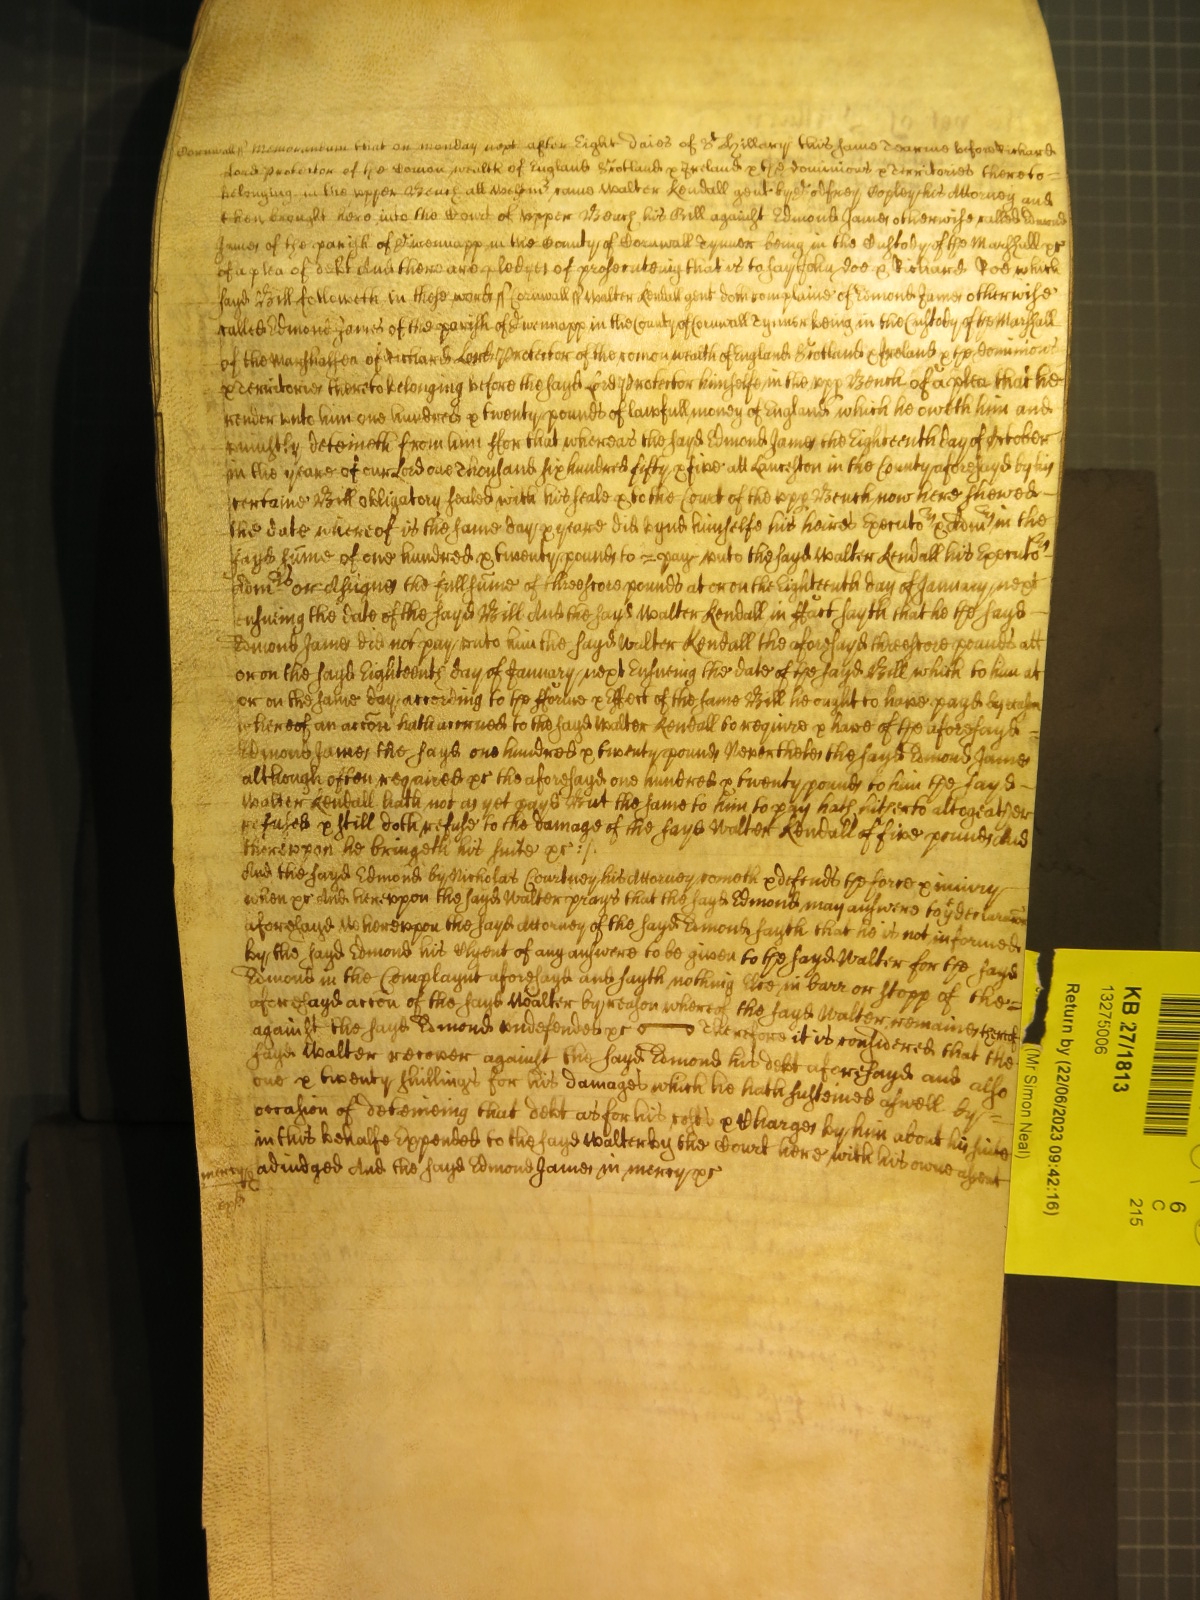 Cornwall ss Memorandum that on monday next after Eight daies of St Hillary this same Tearme before Richard
Lord protector of the Comon wealth of England Scotland & Ireland & the dominions & Territories thereto=
belonging in the upper Bench att Westmr came Walter Kendall gent by Godfrey Copley his Attorney and
then brought here into the Court of upper Bench his Bill against Edmond James otherwise called Edmond
James of the parish of Gwennapp in the County of Cornwall Tynner being in the Custody of the Marshall &c
of a plea of debt And there are pledges of prosecuteing that is to say John Doe & Richard Roe which
sayd Bill followeth in these words ss Cornwall ss Walter Kendall gent doth complaine of Edmond James otherwise
called Edmond James of the parish of Gwennapp in the County of Cornwall Tynner being in the Custody of the Marshall
of the Marshallsea of Richard Lord Protector of the comon wealth of England Scotland & Ireland & the dominions
& territories thereto belonging before the sayd Lord Protector himselfe in the upp Bench of a plea that he
render unto him one hundred & twenty pounds of lawfull money of England which he oweth him and
uniustly deteineth from him ffor that whereas the sayd Edmond James the Eighteenth day of October
in the yeare of our Lord one Thousand six hundred fifty & five att Lanceston in the County aforesayd by his
certaine Bill obligatory sealed with his seale & to the Court of the upp Bench now here shewed
the date whereof is the same day & yeare did bynd himselfe his heires Executors & Admrs in the
sayd sume of one hundred & twenty pounds to = pay unto the sayd Walter Kendall his Executors
Admrs or Assignes the full sume of threescore pounds at or on the Eighteenth day of January next
ensueing the date of the sayd Bill And the sayd Walter Kendall in ffact sayth that he the sayd
Edmond James did not pay unto him the sayd Walter Kendall the aforesayd threescore pounds att
or on the sayd Eighteenth day of January next Ensueing the date of the sayd Bill which to him at
or on the same day according to the fforme & Effect of the same Bill he ought to have payd by reason
whereof an accon hath accrued to the sayd Walter Kendall to require & have of the aforesayd =
Edmond James the sayd one hundred & twenty pounds Neverthelesse the sayd Edmond James
although often required &c the aforesayd one hundred & twenty pounds to him the sayd
Walter Kendall hath not as yet payd But the same to him to pay hath hitherto altogeather
refused & still doth refuse to the damage of the sayd Walter Kendall of five pounds And
thereupon he bringeth his suite &c :/.
And the sayd Edmond by Nicholas Courtney his Attorney cometh & defends the force & iniury
when &c And hereuppon the sayd Walter prays that the sayd Edmond may answere to ye declaracon
aforesayd Whereuppon the sayd Attorney of the sayd Edmond sayth that he is not informed
by the sayd Edmond his Clyent of any answere to be given to the sayd Walter for the sayd
Edmond in the Complaynt aforesayd and sayth nothing Else in barr or stopp of the =
aforesayd accon of the sayd Walter by reason whereof the sayd Walter remaines thereof
against the sayd Edmond undefended &c Therefore it is considered that the
sayd Walter recover against the sayd Edmond his debt aforesayd and also
one & twenty shillings for his damages which he hath susteined aswell by =
occasion of deteineing that debt as for his costs & Charges by him about his suite
in this behalfe Expended to the sayd Walter by the Court here with his owne assent
mercy adiudged And the sayd Edmond James in mercy &c
KB 27/1813
13275006
Return by (22/06/2023 09:42:16)
(Mr Simon Neal)
6
C
215